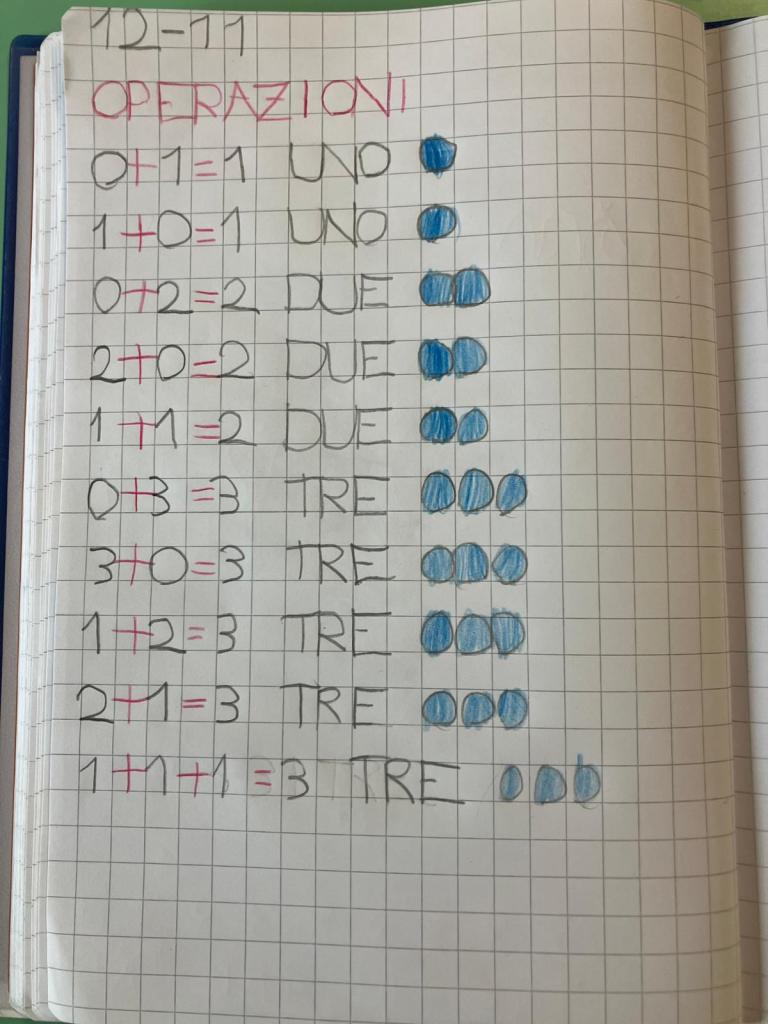 12-11
OPERAZIONI
0+1=1 UNO
1+0=1 UNO
0+2=2 DUE
2+0=2 DUE
1+1=2 DUE
0+3=3 TRE
3+0=3 TRE
1+2=3 TRE
2+1=3 TRE
1+1+1=3 TRE